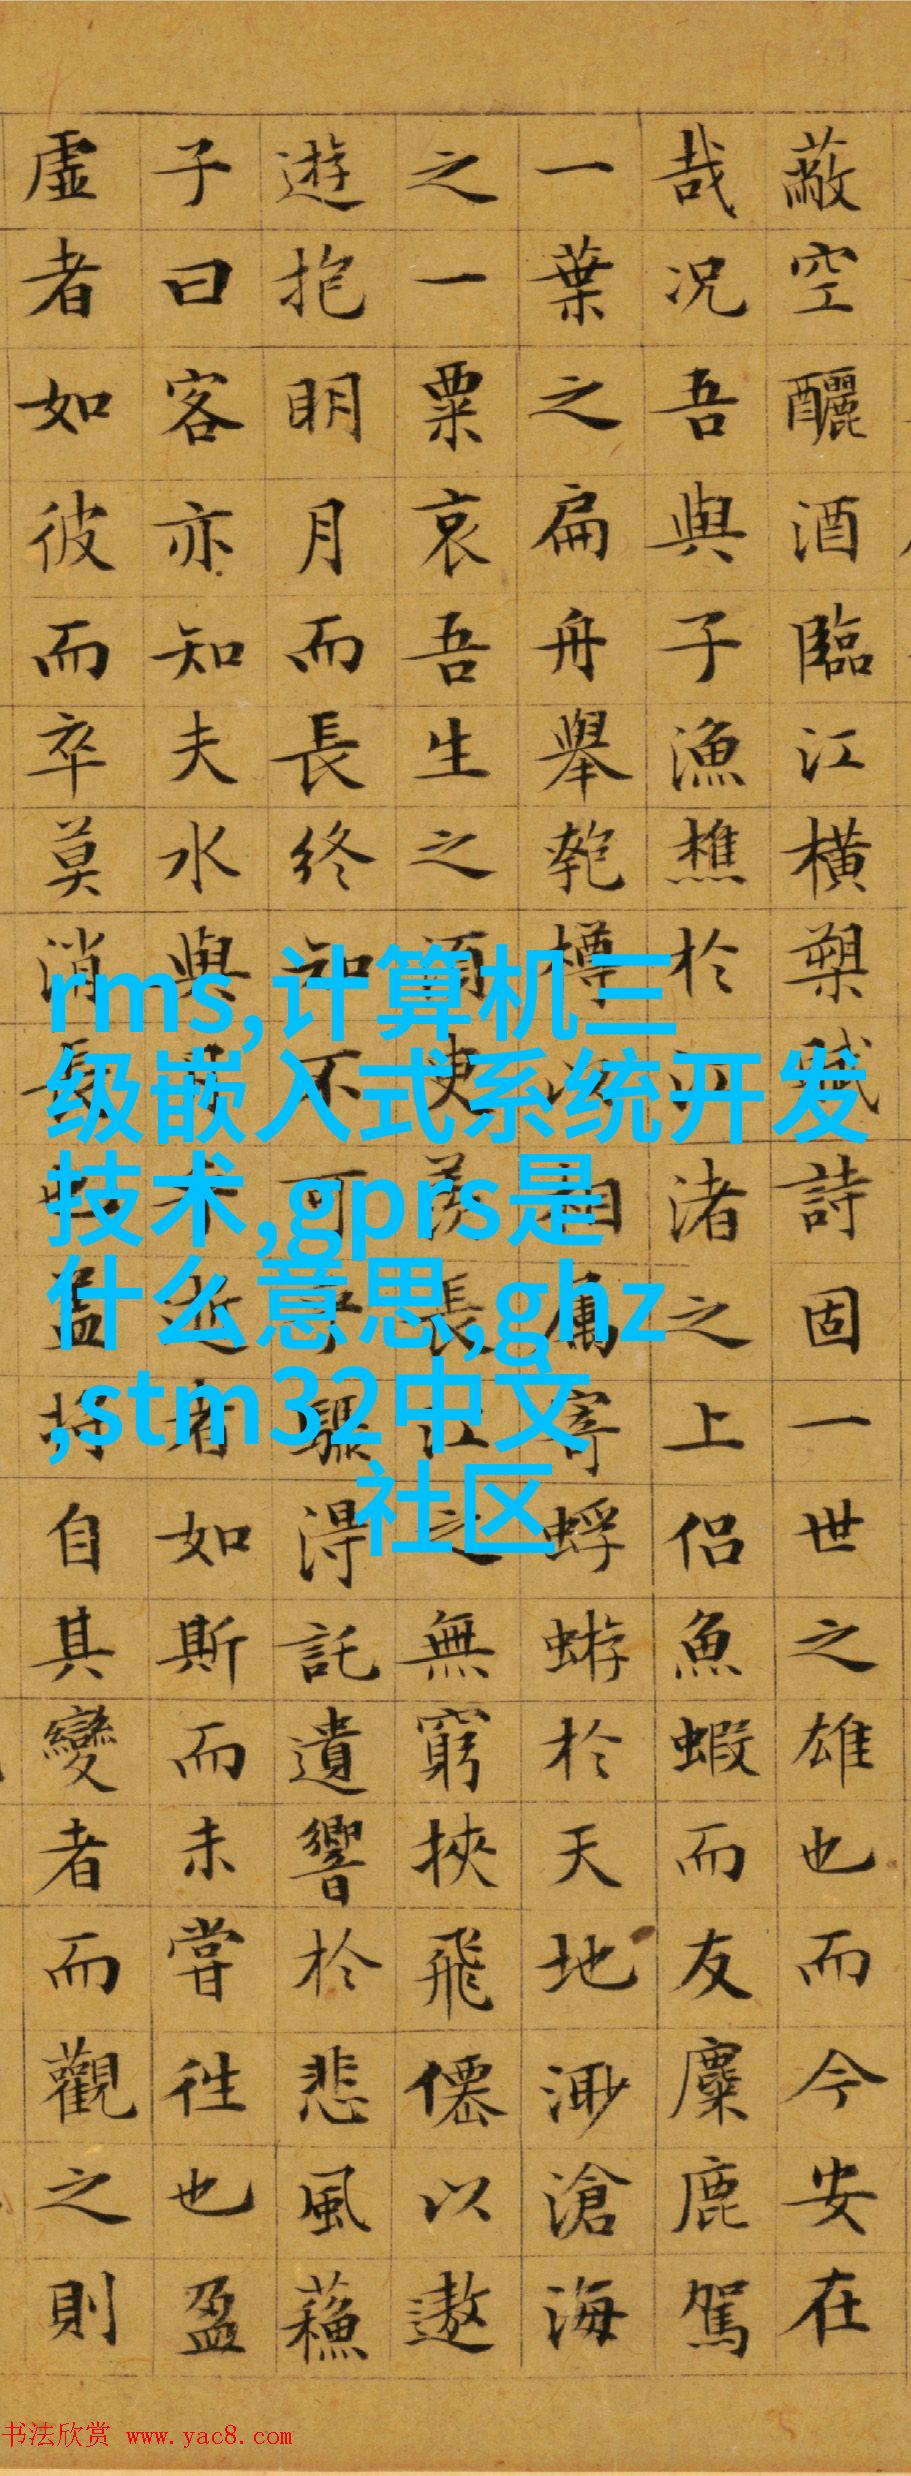 蔽空釃酒臨江橫槊賦詩固一世之雄也而今安在
哉况吾與子漁樵於江渚之上侶魚蝦而友麋鹿駕
一葉之扁舟舉匏樽以相屬寄蜉蝣於天地渺滄海
之一粟哀吾生之須臾羨長江之無窮挾飛僊以遨
遊抱明月而長終知不可乎驟得託遺響於悲風蘇
子曰客亦知夫水與月乎逝者如斯而未嘗往也盈
虛者如彼而卒莫消長也蓋將自其變者而觀之則
rms,计算机三
级嵌入式系统开发
技术,gprs是
什么意思,ghz
,stm32中文
社区
书法欣赏 www.yac8.com